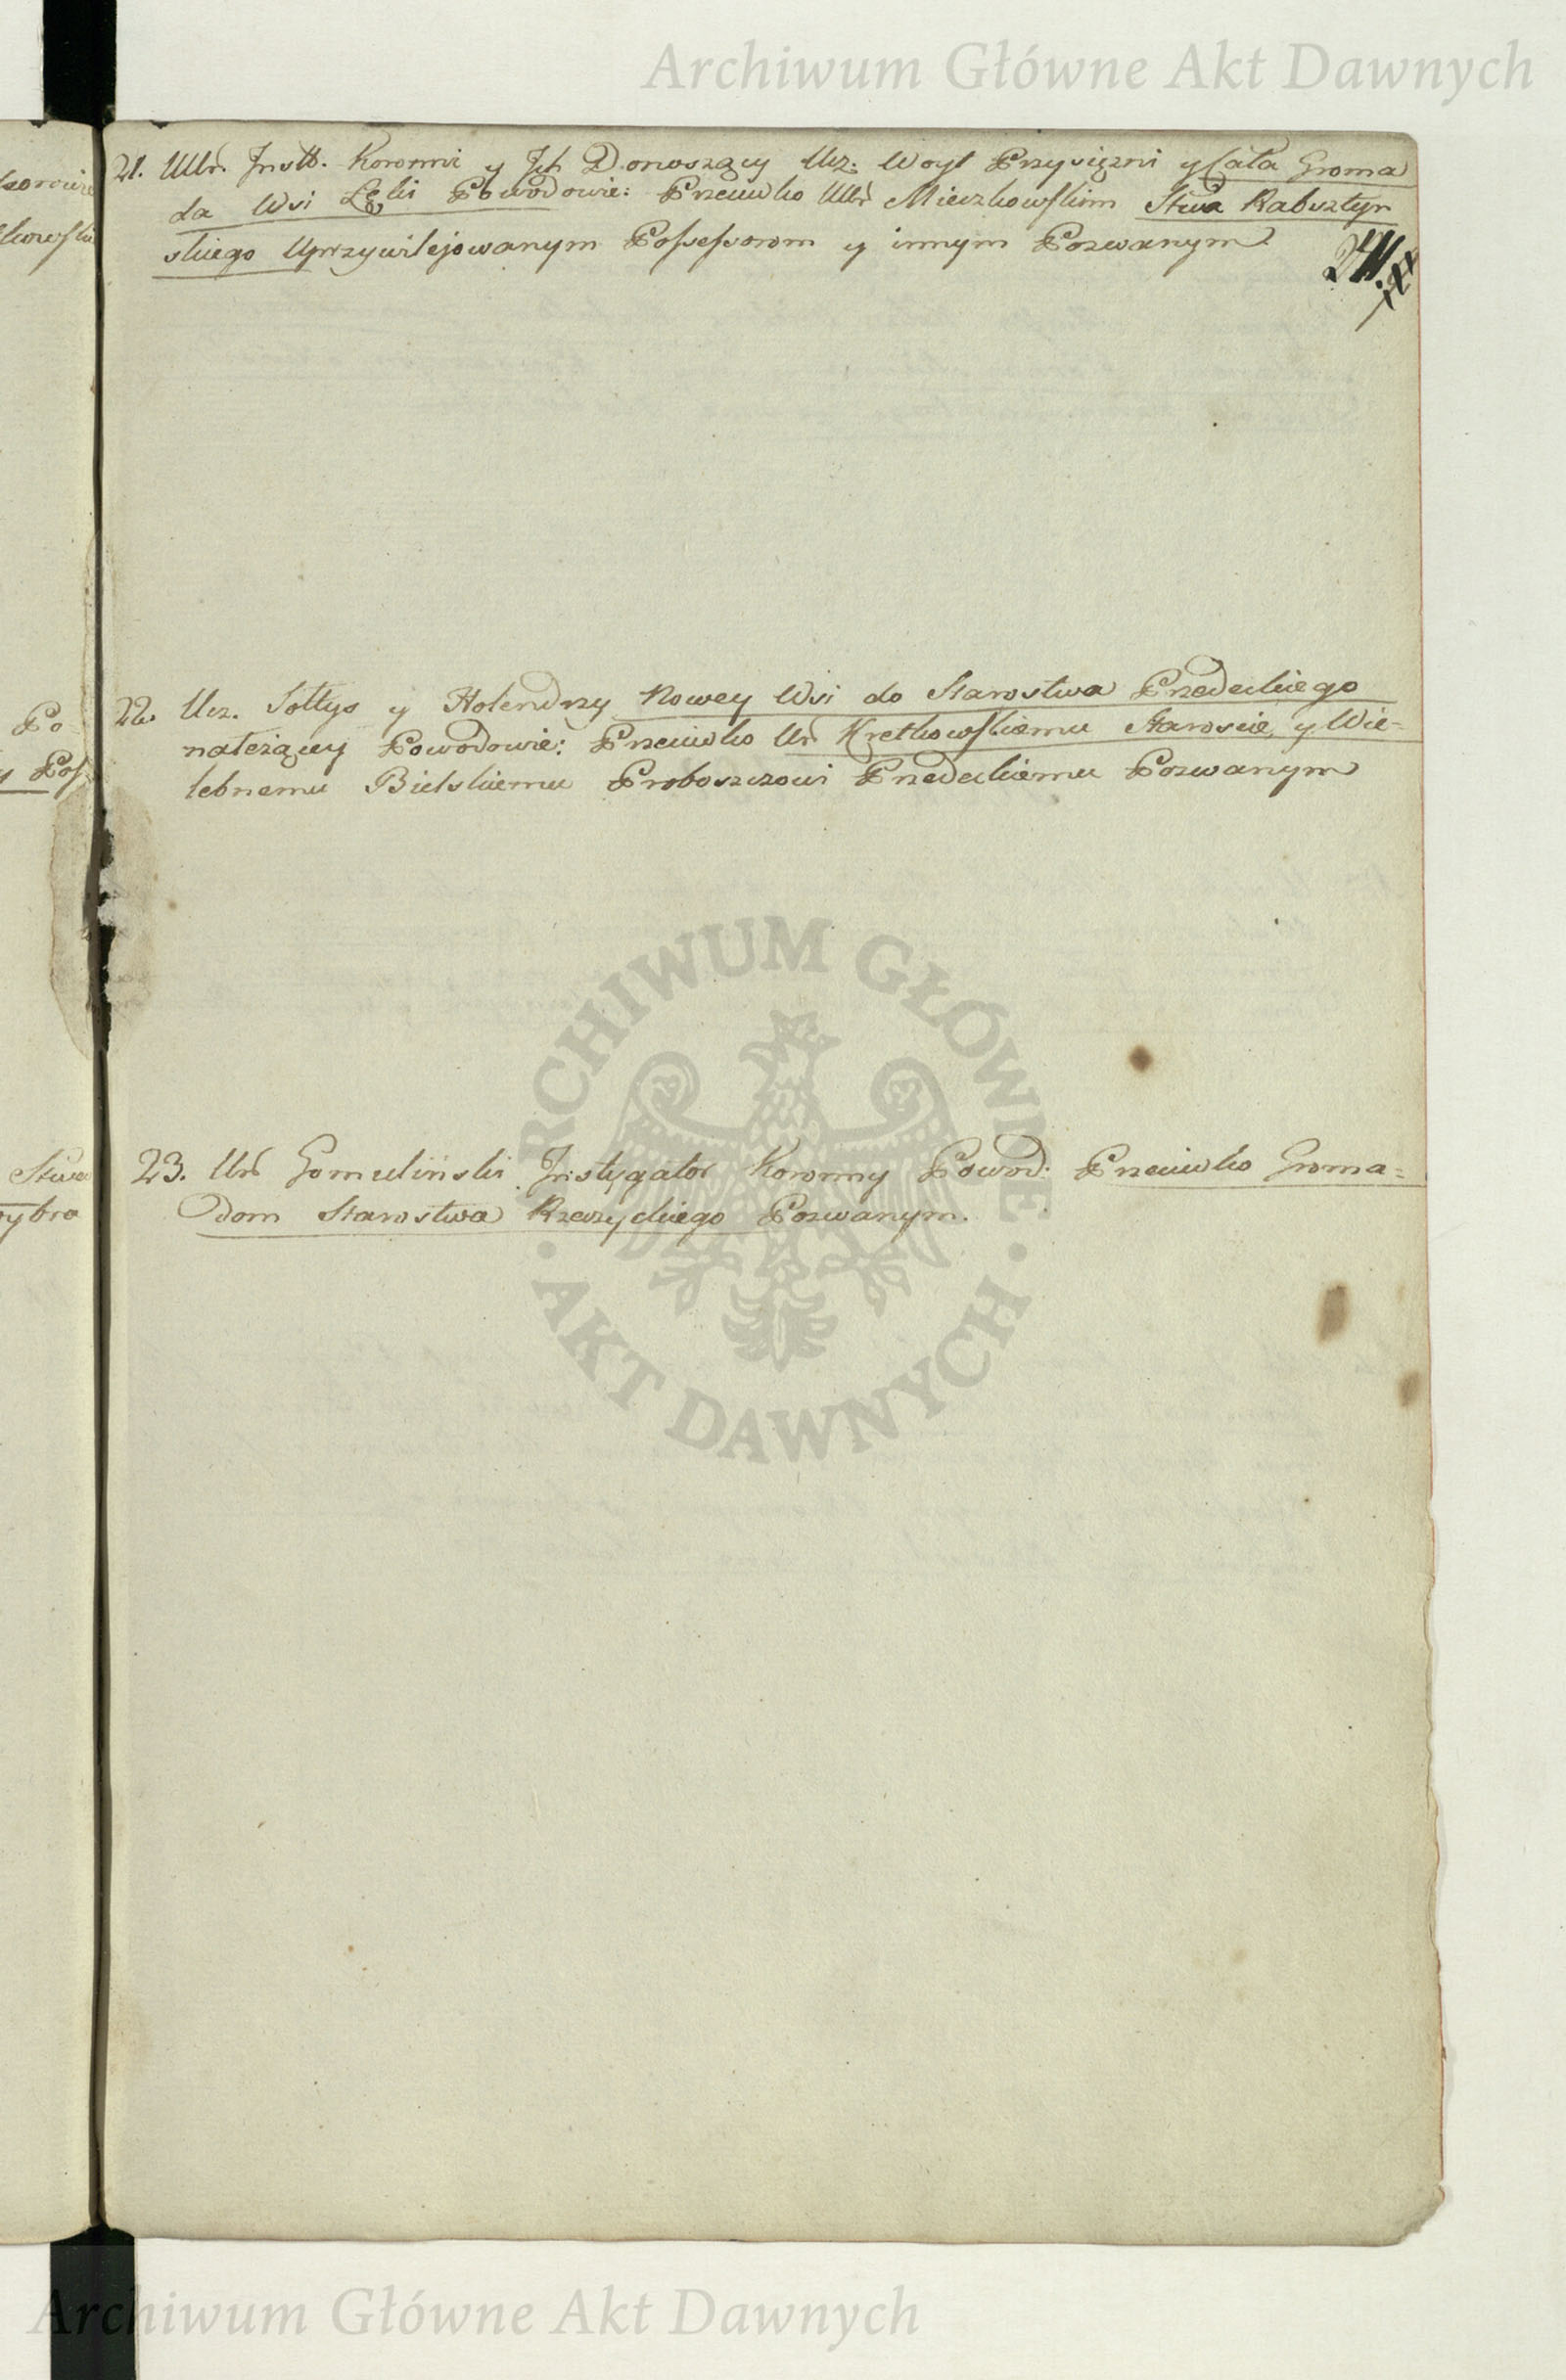 Archiwum Główne Akt Dawnych
21. UUr. Instt. Koronni y Ich Donoszący Ucz. Woyt Przysięzni y Cała Groma
da Wsi Łęki Powodowie: Przeciwko UUr Mieczkowskim Stwa Rabsztyn
skiego Uprzywilejowanym Possessorom y innym Pozwanym
22. Ucz. Sołtys y Holendrzy Nowey Wsi do Starostwa Przedeckiego
należący Powodowie: Przeciwko Ur Kretkowskiemu Staroscie, y Wie-
lebnemu Bielskiemu Proboszczowi Przedeckiemu Pozwanym
23. Ur Gomuliński Instygator Koronny Powod: Przeciwko Groma=
dom Starostwa Rzeczyckiego Pozwanym.
Po
Stwa
ARCHIWUM GŁÓWNE
· AKT DAWNYCH ·
Archiwum Główne Akt Dawnych